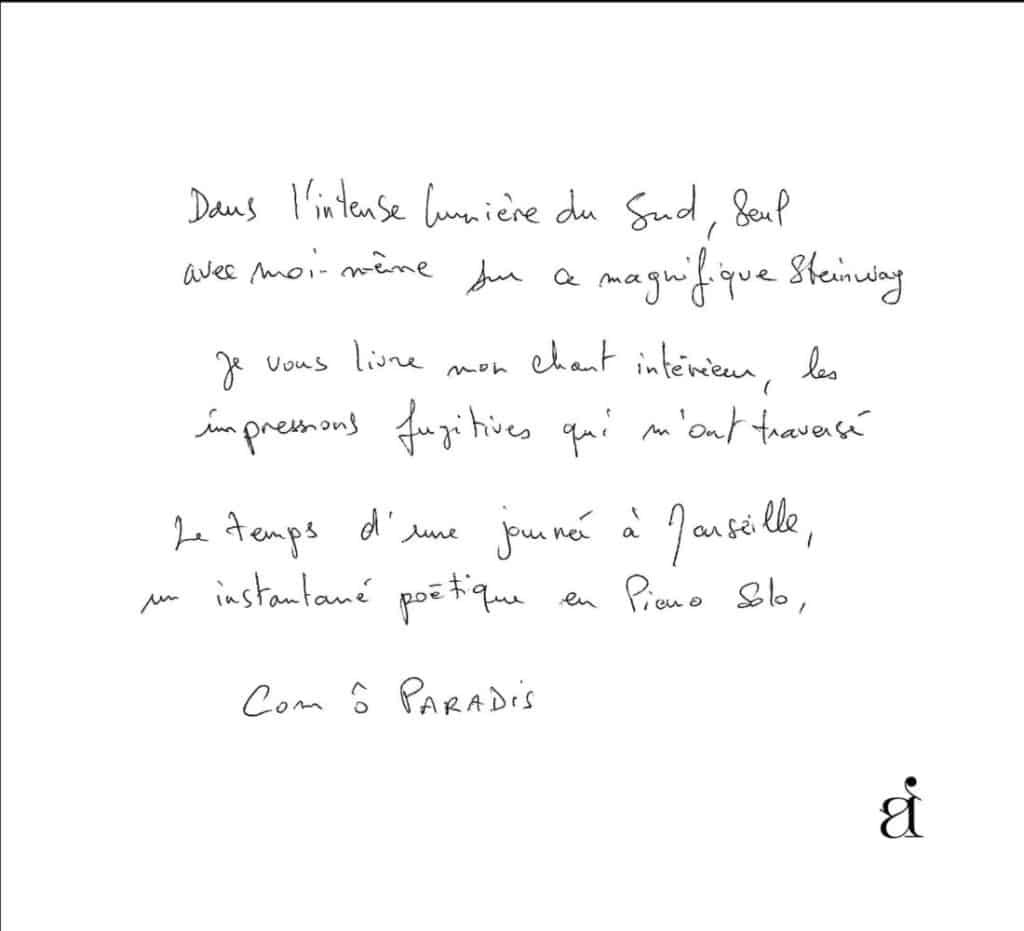 Dans l'intense lumière du Sud, seul
avec moi-même sur ce magnifique Steinway
Je vous livre mon chant intérieur, les
impressions fugitives qui m'ont traversé
Le temps d'une journée à Marseille,
un instantané poëtique en Piano Solo,
Com ô PARADiS